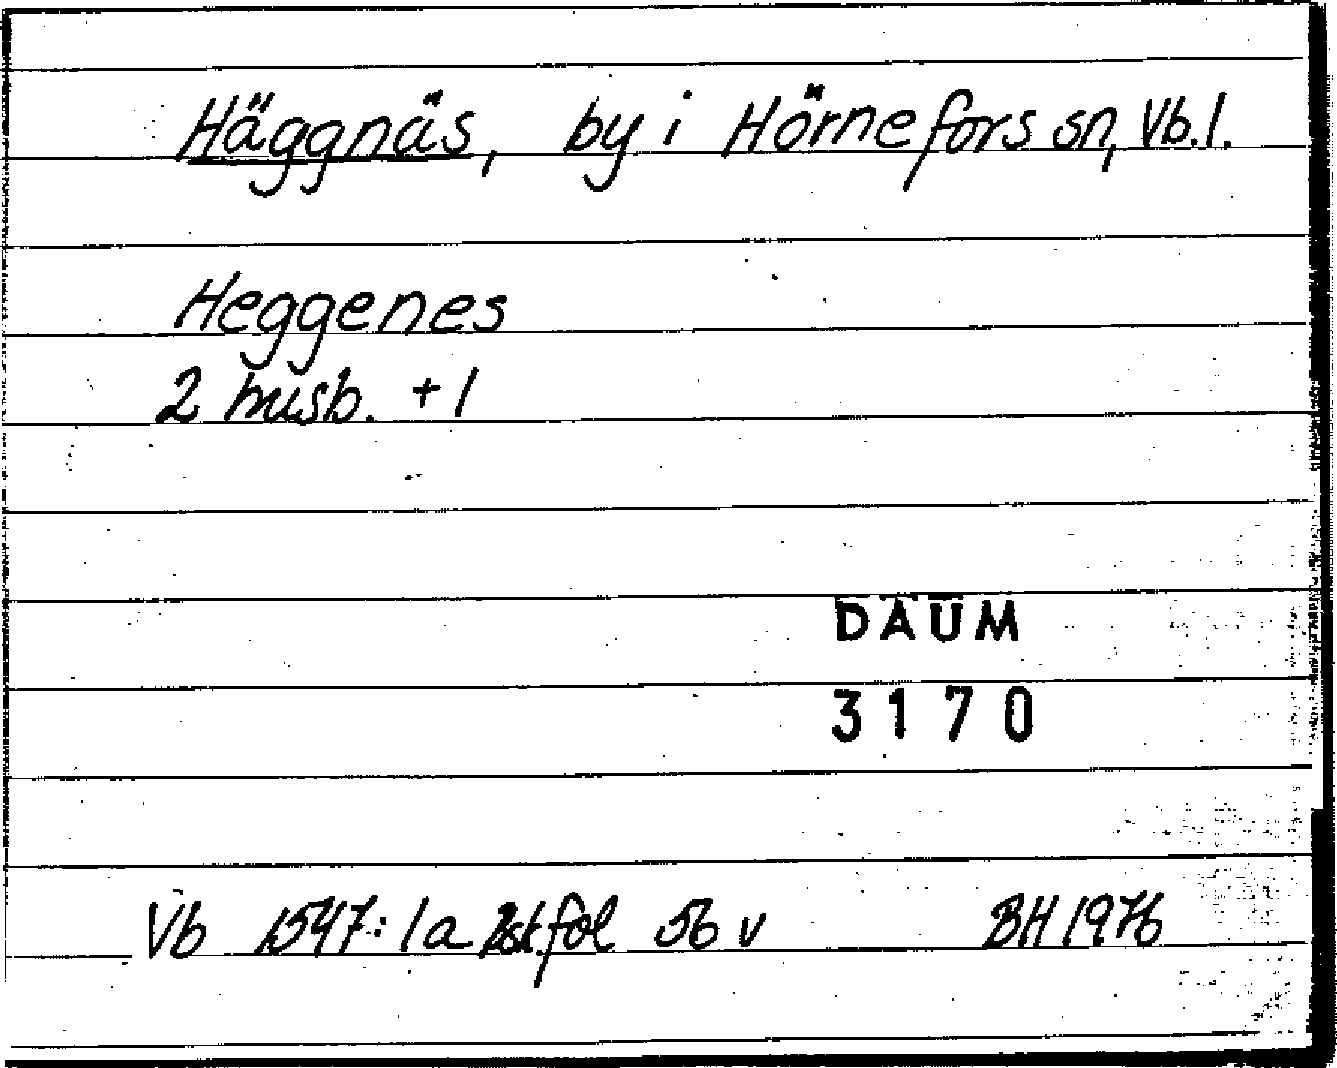 Häggnäs, by i Hörnefors sn, Vb.l.
Heggenes
2 husb. + 1
DAUM
3170
Vb 1547:1a fol 56 v BH 1976